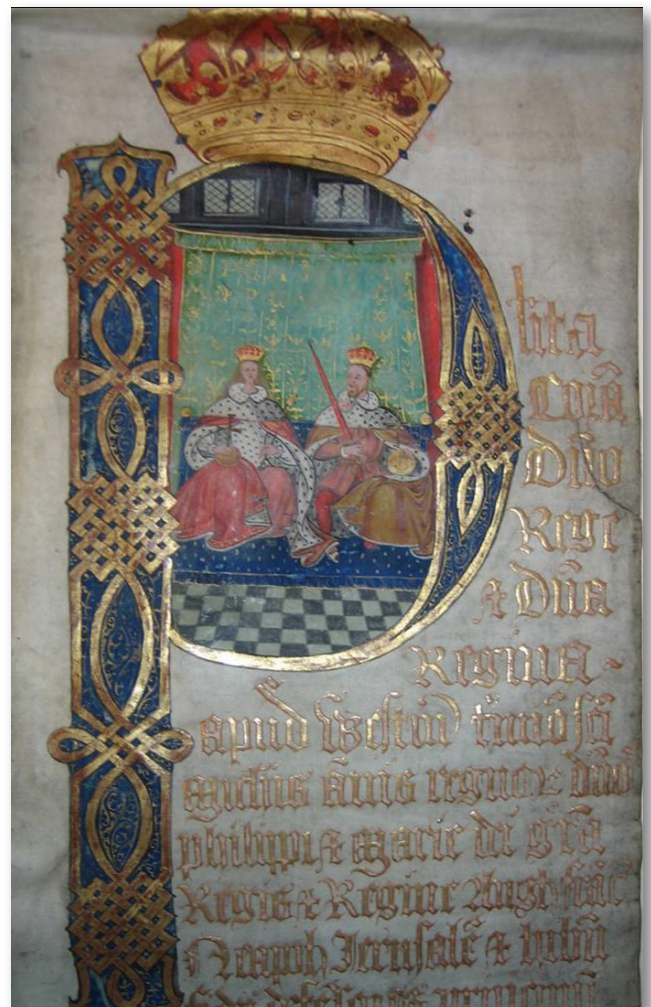 Plita
Corā
Dño
Rege
& Dña
Regina
apud Westm̃ sc̃i
Michis Annis regnor
philippi & Marie dei gr̃a
Regis & Regine Angl franc̃
Neapol̃ Jerusalē & hibñ